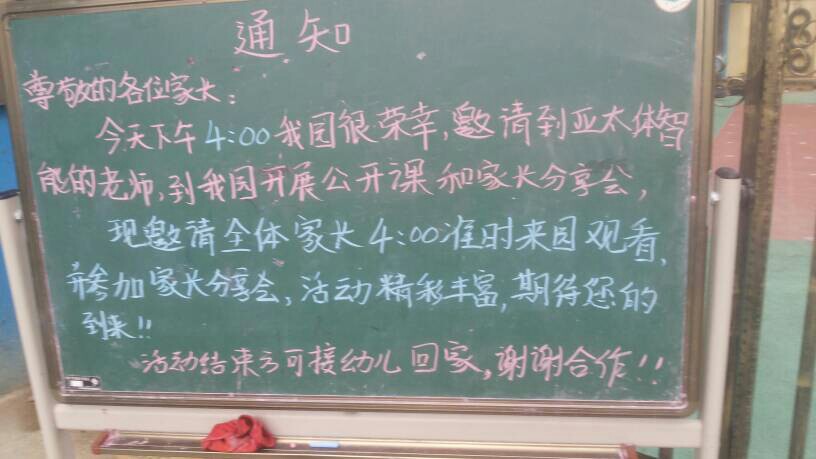 通知
尊敬的各位家长：
今天下午4:00我园很荣幸,邀请到亚太体智
能的老师,到我园开展公开课和家长分享会,
现邀请全体家长4:00准时来园观看,
并参加家长分享会,活动精彩丰富,期待您的
到来!!
活动结束方可接幼儿回家,谢谢合作!!